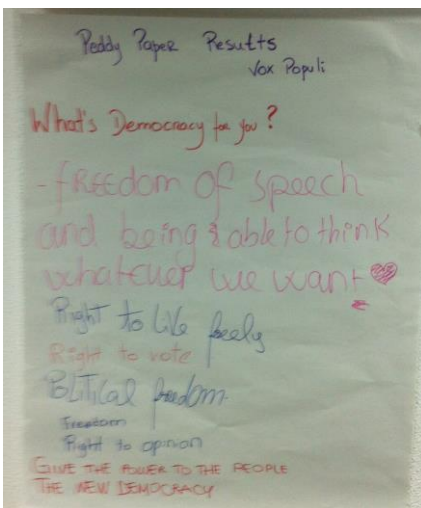 Peddy Paper Results
Vox Populi
What's Democracy for you?
- fREEdom of speech
and being able to think
whatever we want
Right to live feely
Right to vote
Political freedom
Freedom
Right to opinion
GIVE THE POWER TO THE PEOPLE
THE NEW DEMOCRACY